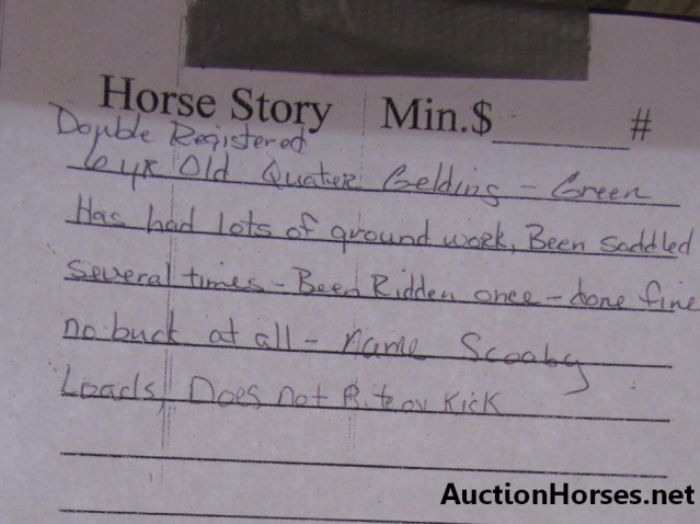 Horse Story Min.$______ #
Double Registered
6 yr Old Quater Gelding - Green
Has had lots of ground work, Been saddled
several times - Been Ridden once - done fine
no buck at all - name Scooby
Loads, Does not Bite or Kick
AuctionHorses.net